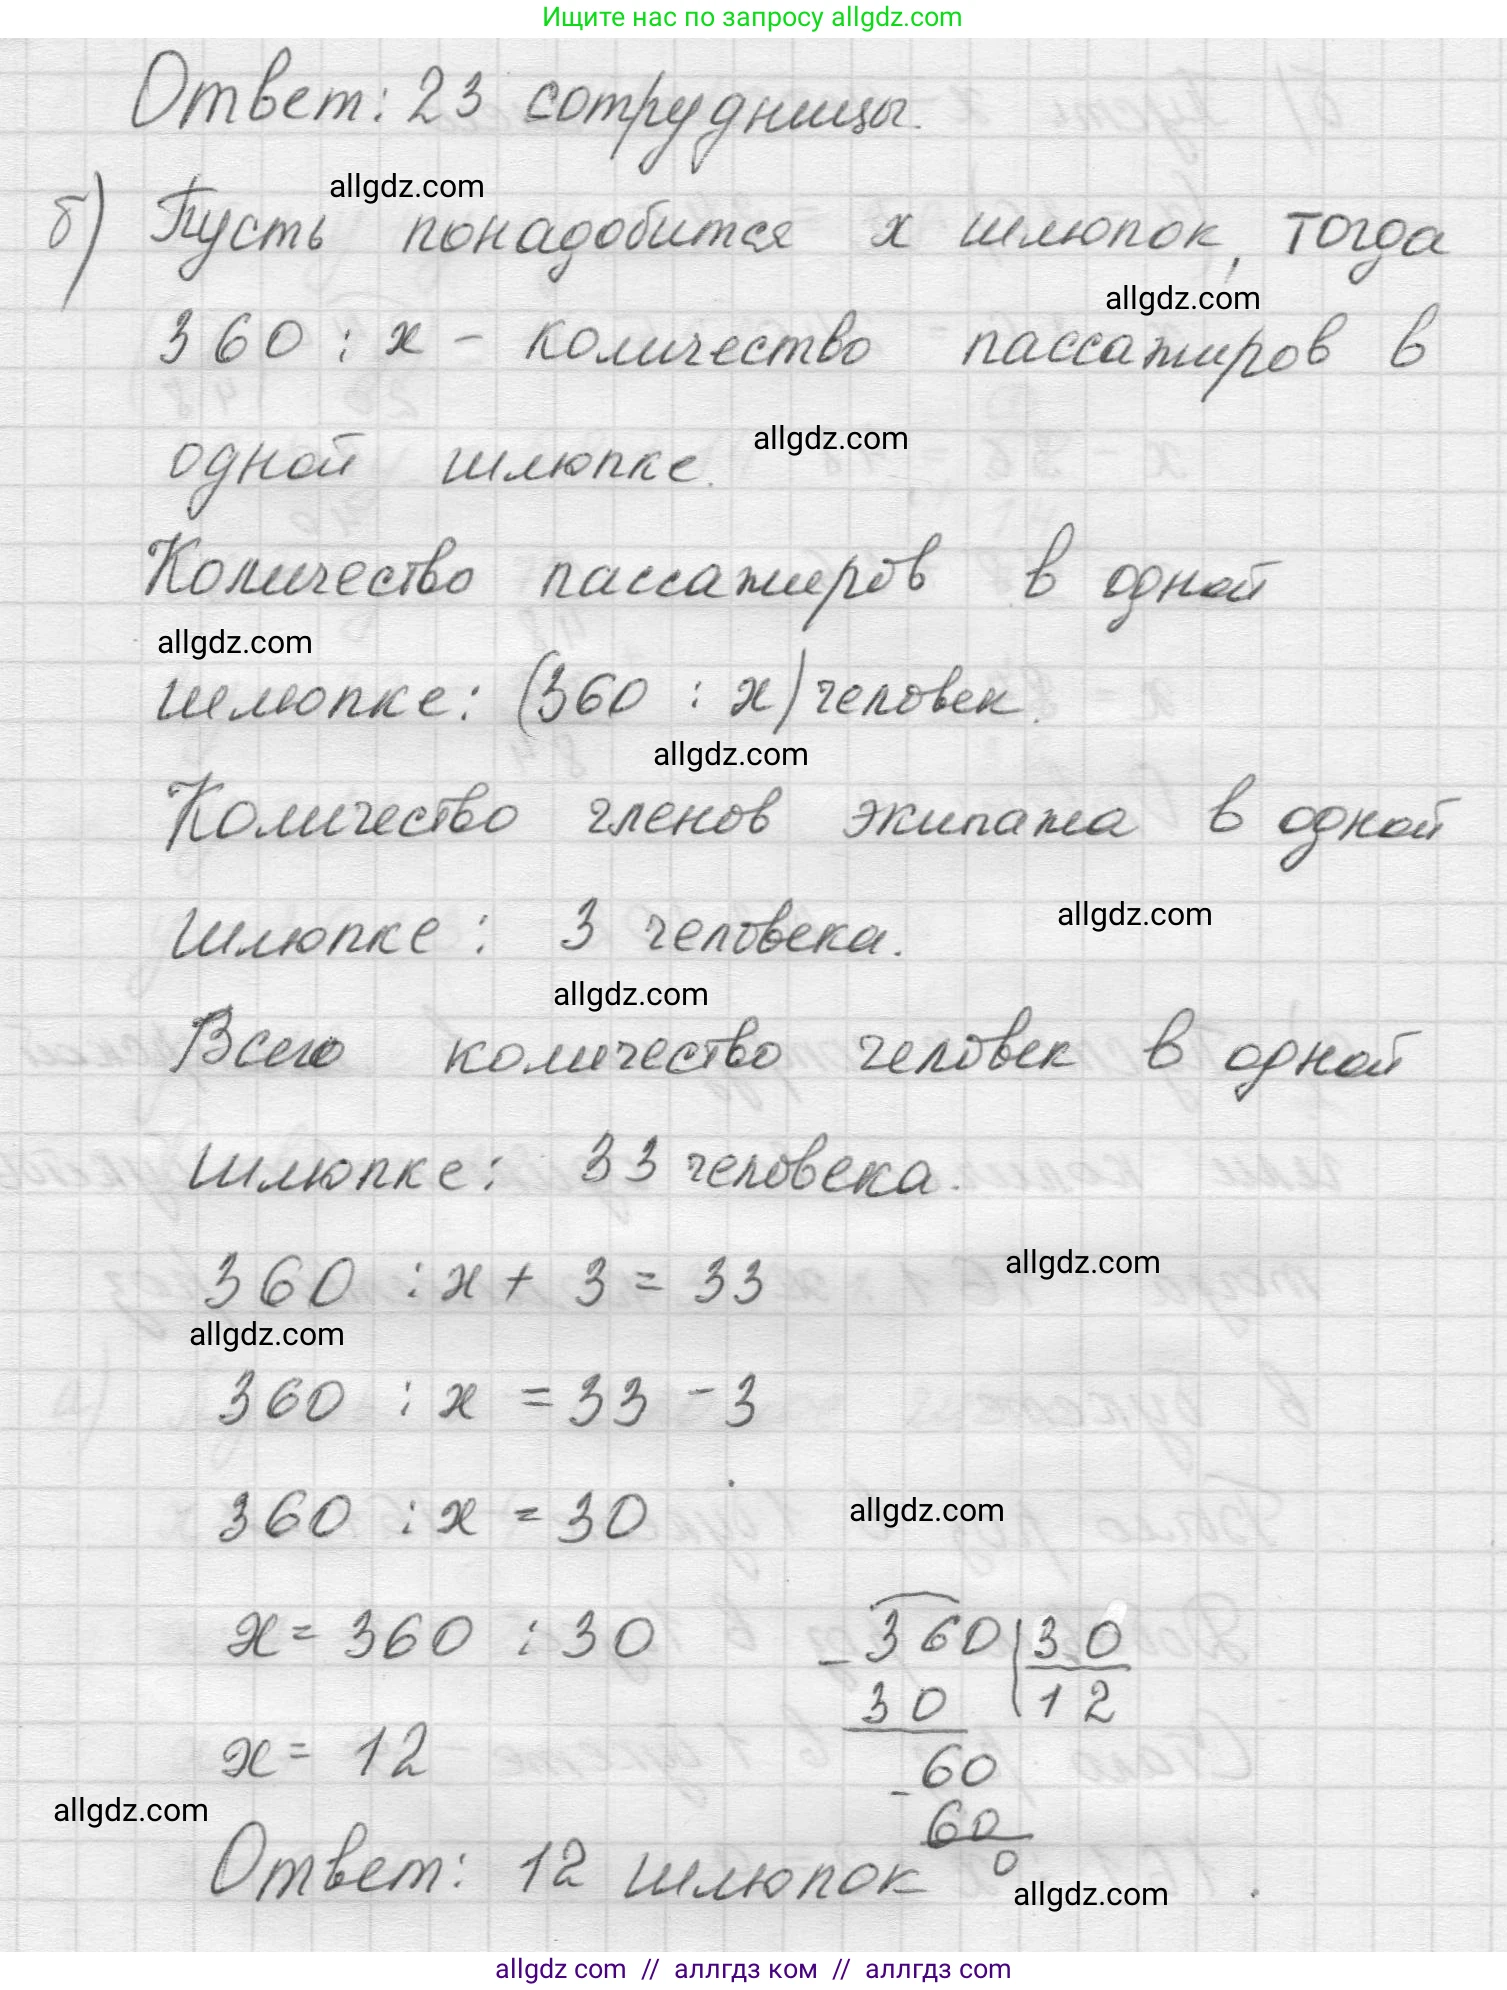 Ищите нас по запросу allgdz.com
Ответ: 23 сотрудницы.
allgdz.com
б) Пусть понадобится x шлюпок, тогда
allgdz.com
360 : x - количество пассажиров в
allgdz.com
одной шлюпке.
Количество пассажиров в одной
allgdz.com
шлюпке: (360 : x) человек.
allgdz.com
Количество членов экипажа в одной
шлюпке: 3 человека.
allgdz.com
allgdz.com
Всего количество человек в одной
шлюпке: 33 человека.
360 : x + 3 = 33
allgdz.com
allgdz.com
360 : x = 33 - 3
360 : x = 30
allgdz.com
x = 360 : 30
- 360 | 30
30 | 12
x = 12
- 60
allgdz.com
60
0
Ответ: 12 шлюпок.
allgdz.com
allgdz com // аллгдз ком // аллгдз com